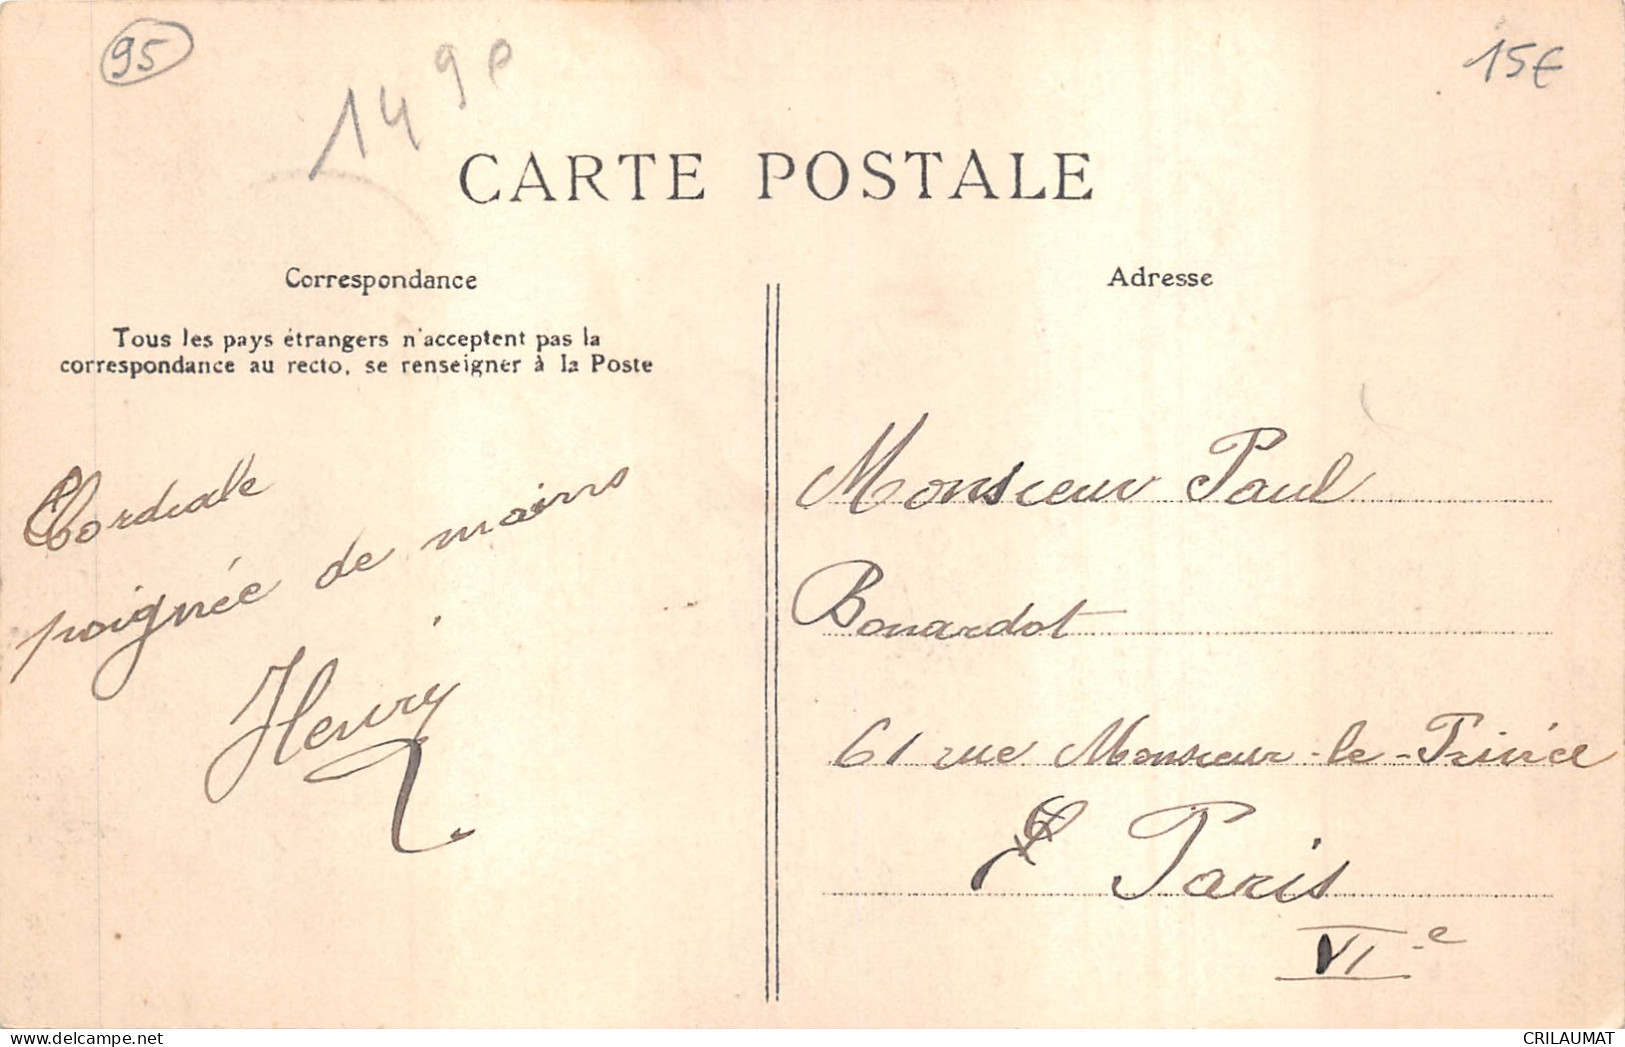 95
149e
15€
CARTE POSTALE
Correspondance
Adresse
Tous les pays étrangers n'acceptent pas la
correspondance au recto, se renseigner à la Poste
Cordiale
poignée de mains
Henry
Monsieur Paul
Bonardot
61 rue Monsieur-le-Prince
Paris
VIe
CRILAUMAT